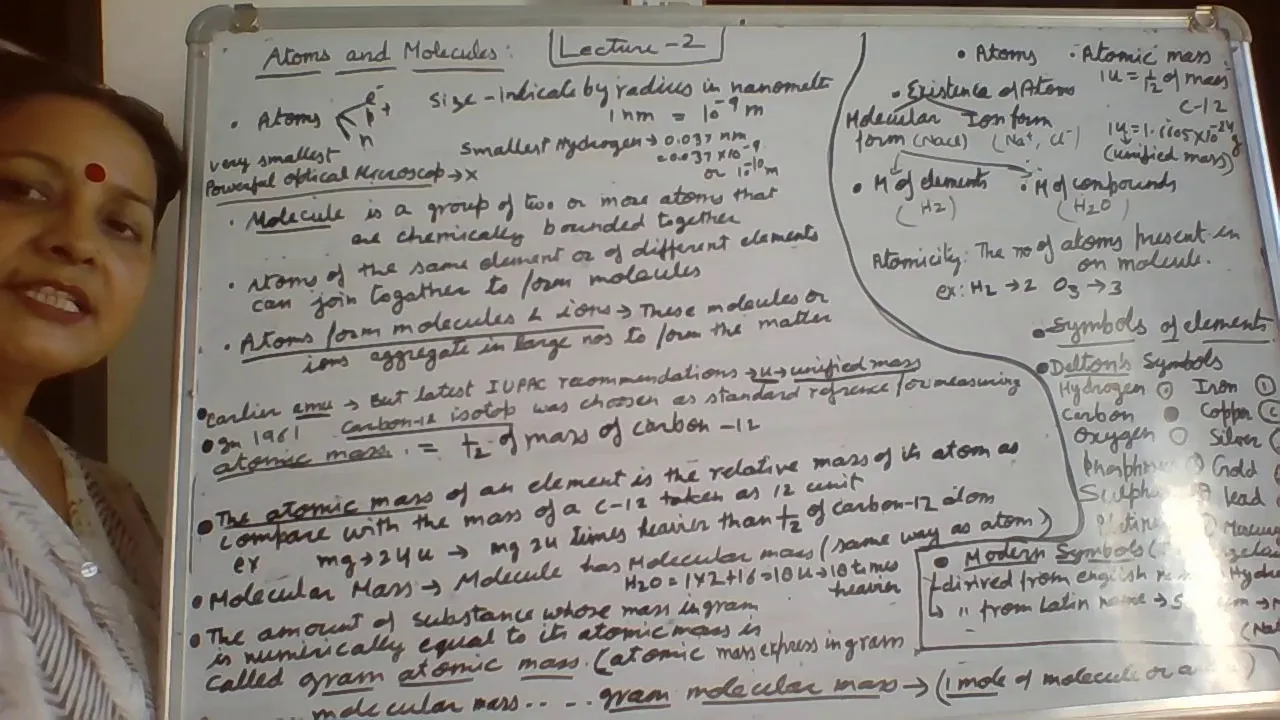 Atoms and Molecules:
Lecture-2
Atoms
e-
p+
n
very smallest
Powerful optical Microscop → x
Size - Indicate by radius in nanomete
1 nm = 10-9 m
Smallest Hydrogen → 0.037 nm
= 0.037 x10-9
or 10-10 m
• Molecule is a group of two or more atoms that
are chemically bounded together
• Atoms of the same element or of different elements
can join together to form molecules
• Atoms form molecules & ions → These molecules or
ions aggregate in large nos to form the matter
• Earlier amu → But latest IUPAC recommendations → u → unified mass
• In 1961 Carbon-12 isotop was choosen as standard refrence for measuring
atomic mass. = 1/12 of mass of carbon-12
• The atomic mass of an element is the relative mass of its atom as
compare with the mass of a C-12 taken as 12 unit
ex mg → 24u → mg 24 times heavier than 1/12 of carbon-12 atom
• Molecular Mass → Molecule has Molecular mass (same way as atom)
H2O = 1x2+16 = 18u → 18 times
heavier
• The amount of substance whose mass in gram
is numerically equal to its atomic mass is
called gram atomic mass. (atomic mass express in gram
molecular mass.. - .. gram molecular mass → (1 mole of molecule or
• Atoms • Atomic mass:
1u = 1/12 of mass
C-12
1u =
(unified mass)
• Existence of Atoms
Molecular Ion form
form (NaCl) (Na+, Cl-)
• M of elements • M of compounds
(H2) (H2O)
Atomicity: The no of atoms present in
on molecule.
ex: H2 → 2 O3 → 3
• Symbols of elements
• Delton's Symbols
Hydrogen Iron
Carbon Copper
Oxygen Silver
Phosphorus Gold
Sulphur Lead
• Modern Symbols
dirived from english
" from Latin name →